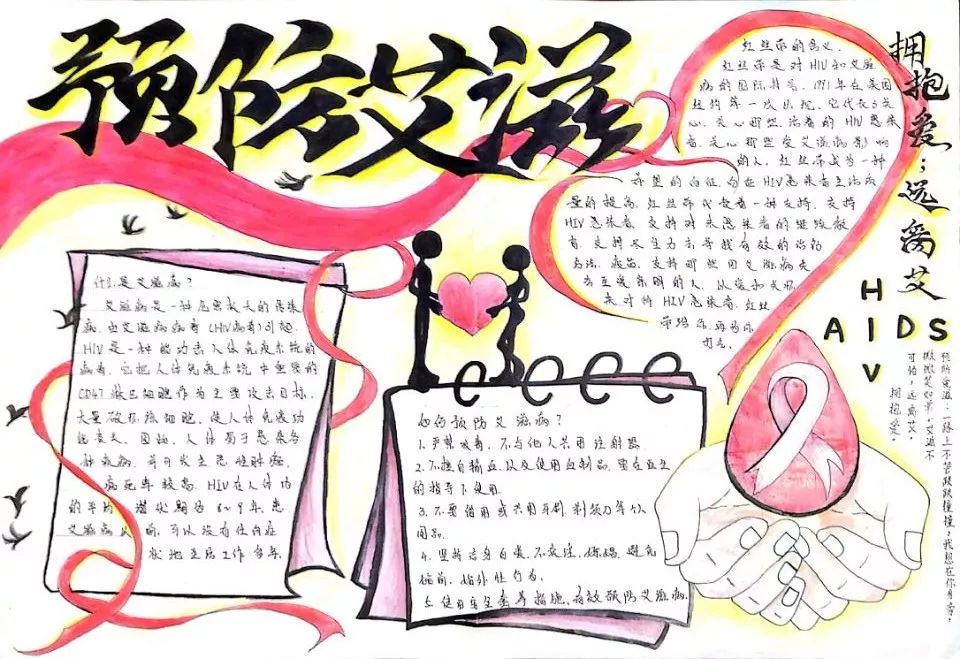 预防艾滋
红丝带的含义.
红丝带是对HIV和艾滋
病的国际符号, 1991年在美国
纽约第一次出现. 它代表了关
心, 关心那些活着的HIV感染
者, 关心那些受艾滋病影响
的人. 红丝带成为一种
希望的象征, 象征HIV感染者生活质
量的提高. 红丝带代表着一种支持, 支持
HIV感染者, 支持对未感染者的继续教
育, 支持尽全力去寻找有效的治疗
方法, 疫苗, 支持那些因艾滋病失
去至爱亲朋的人. 以爱和关怀
来对待HIV感染者, 红丝
带
拥抱爱；远离艾
HIV
AIDS
预防爱滋：一路上不苦跌跌撞撞，我想在你身旁，
拥抱爱。
什么是艾滋病？
艾滋病是一种危害极大的传染
病, 由艾滋病病毒 (HIV病毒) 引起.
HIV是一种能攻击人体免疫系统的
病毒. 它把人体免疫系统中重要的
CD4T淋巴细胞作为主要攻击目标,
大量破坏该细胞, 使人体免疫功
能丧失. 因此, 人体易于感染各
种疾病, 并可发生恶性肿瘤,
病死率较高. HIV在人体内
的平均潜伏期为8~9年, 患
艾滋病以前, 可以没有任何症
状地生活工作多年.
如何预防艾滋病？
1. 严禁吸毒, 不与他人共用注射器
2. 不擅自输血, 以及使用血制品, 要在医生
的指导下使用.
3. 不要借用或共用牙刷, 剃须刀等个人
用品.
4. 坚持洁身自爱, 不卖淫, 嫖娼, 避免
婚前, 婚外性行为.
5. 使用安全套等措施, 有效预防艾滋病.